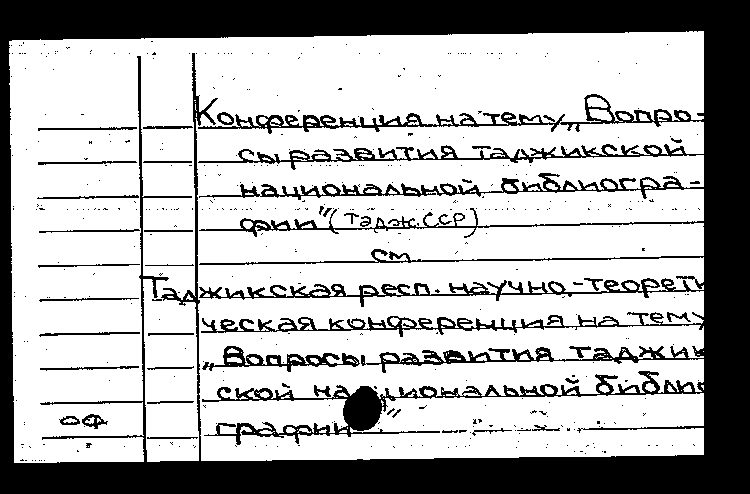 Конференция на тему „Вопро-
сы развития таджикской
национальной библиогра-
фии" (Тадж.ССР)
см
Таджикская респ. научно-теорети
ческая конференция на тему
„Вопросы развития таджик
ской национальной библио
графии"
оф